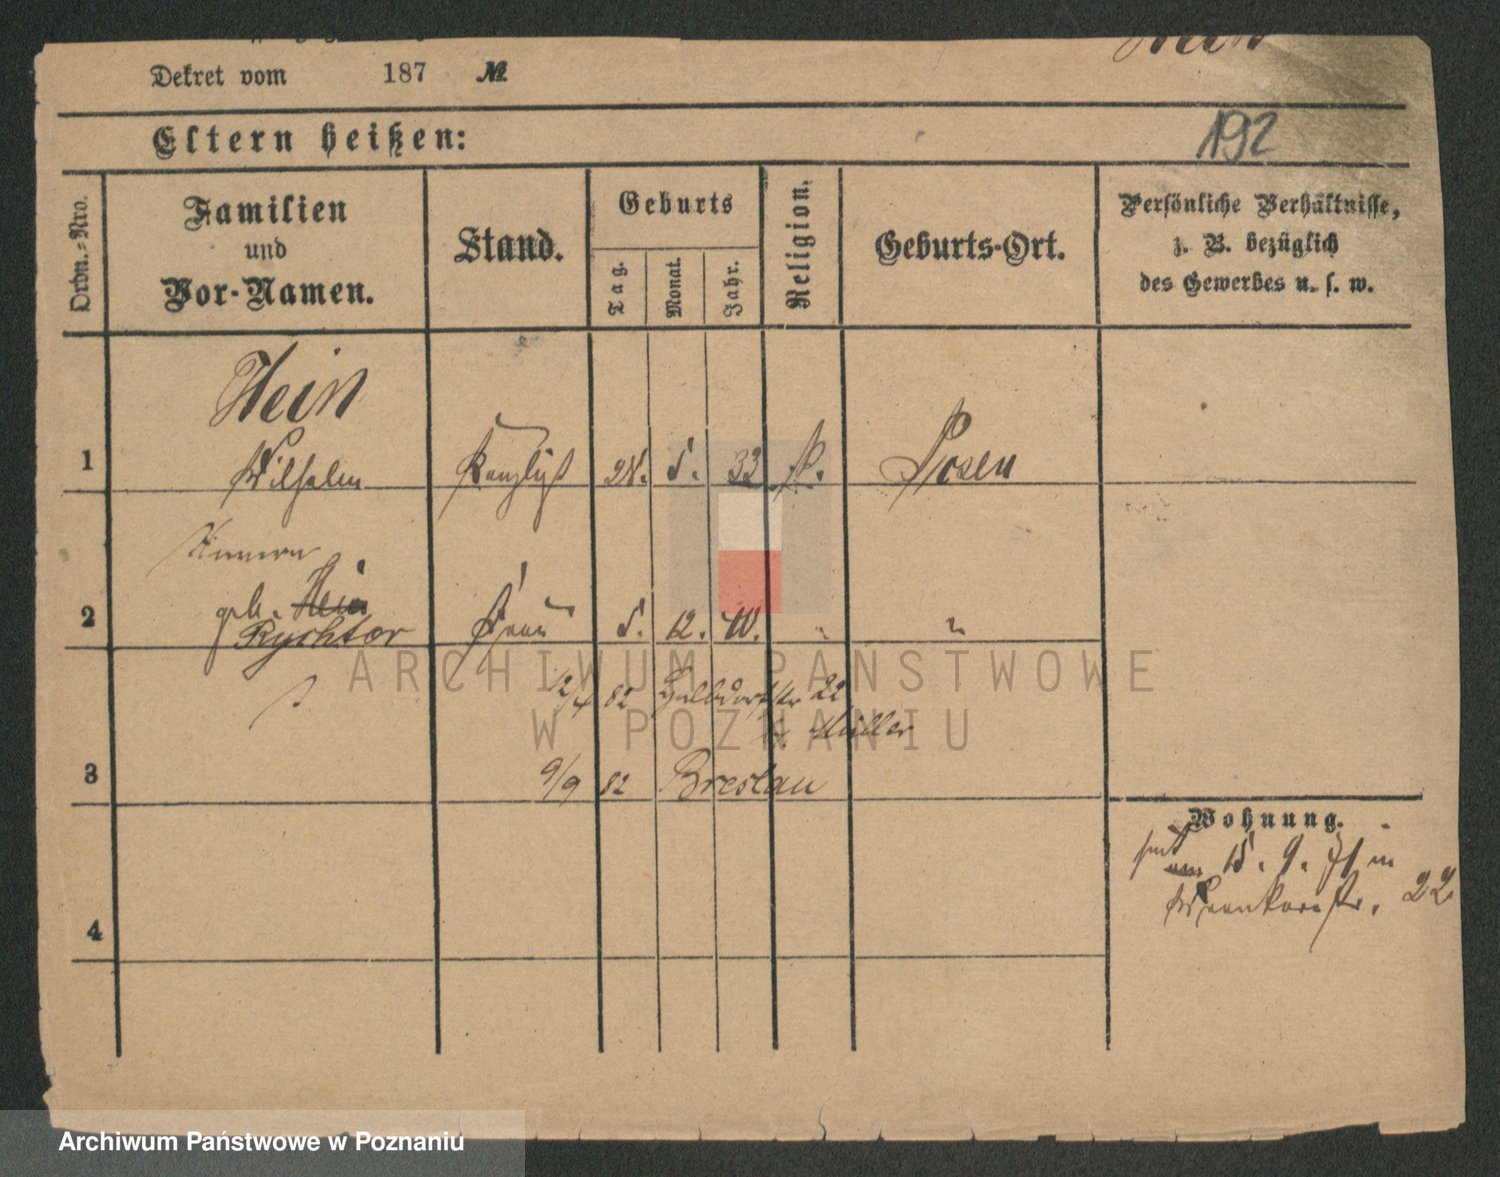 Hein
Dekret vom 187 №
Eltern heißen:
192
Ordn.-Nro.
Familien
und
Vor-Namen.
Stand.
Geburts
Tag.
Monat.
Jahr.
Religion.
Geburts-Ort.
Persönliche Verhältnisse,
z. B. bezüglich
des Gewerbes u. s. w.
Hein
1 Wilhelm Kanzlist 5. 33 k. Posen
2 geb. Hein Frau 5. 12. "
Rychter
82 Halbdorfstr 22
b. Müller
3 9/9 82 Breslau
Wohnung.
seit 15. 9. 71 in
22
4
ARCHIWUM PAŃSTWOWE
W POZNANIU
Archiwum Państwowe w Poznaniu